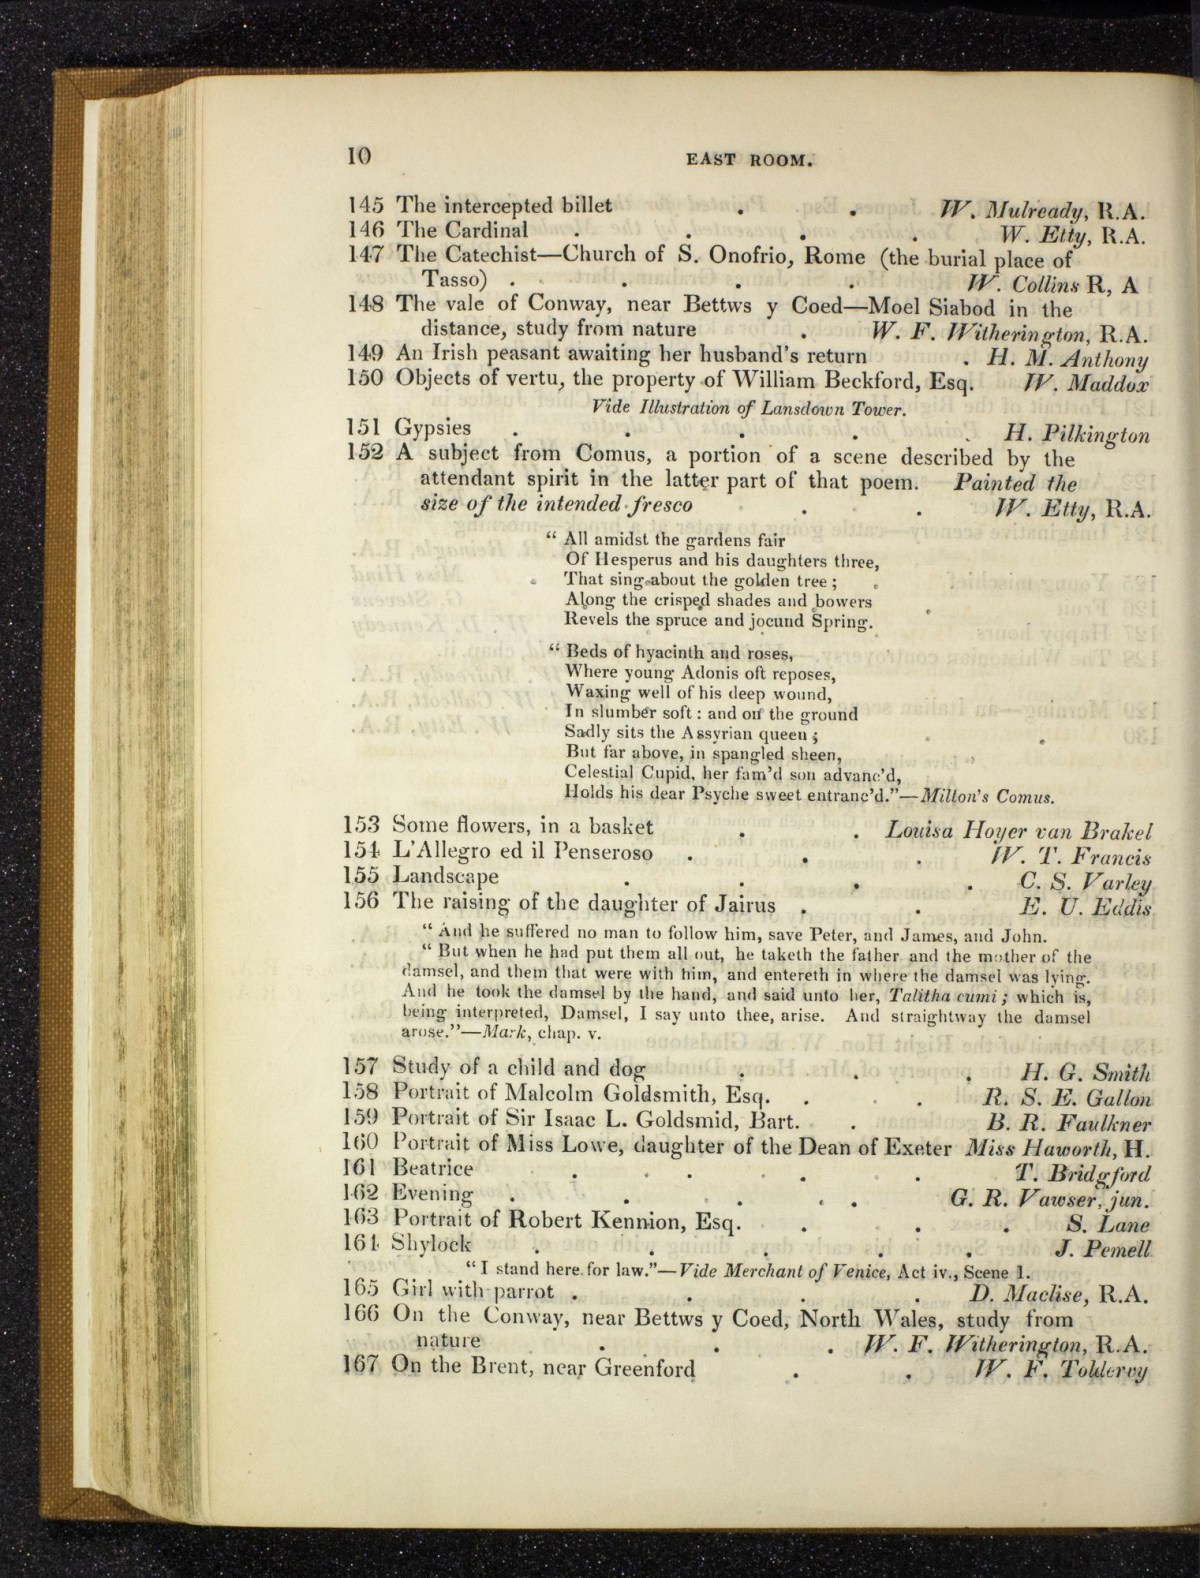 10 EAST ROOM.
145 The intercepted billet . . W. Mulready, R.A.
146 The Cardinal . . . . W. Etty, R.A.
147 The Catechist—Church of S. Onofrio, Rome (the burial place of
Tasso) . . . . W. Collins R, A
148 The vale of Conway, near Bettws y Coed—Moel Siabod in the
distance, study from nature . W. F. Witherington, R.A.
149 An Irish peasant awaiting her husband's return . H. M. Anthony
150 Objects of vertu, the property of William Beckford, Esq. W. Maddox
Vide Illustration of Lansdown Tower.
151 Gypsies . . . . . H. Pilkington
152 A subject from Comus, a portion of a scene described by the
attendant spirit in the latter part of that poem. Painted the
size of the intended fresco . . W. Etty, R.A.
“ All amidst the gardens fair
Of Hesperus and his daughters three,
That sing about the golden tree ;
Along the crisped shades and bowers
Revels the spruce and jocund Spring.
“ Beds of hyacinth and roses,
Where young Adonis oft reposes,
Waxing well of his deep wound,
In slumber soft : and on the ground
Sadly sits the Assyrian queen ;
But far above, in spangled sheen,
Celestial Cupid, her fam'd son advanc'd,
Holds his dear Psyche sweet entranc'd.”—Milton's Comus.
153 Some flowers, in a basket . . Louisa Hoyer van Brakel
154 L'Allegro ed il Penseroso . . . W. T. Francis
155 Landscape . . . . C. S. Varley
156 The raising of the daughter of Jairus . . E. U. Eddis
“ And he suffered no man to follow him, save Peter, and James, and John.
“ But when he had put them all out, he taketh the father and the mother of the
damsel, and them that were with him, and entereth in where the damsel was lying.
And he took the damsel by the hand, and said unto her, Talitha cumi ; which is,
being interpreted, Damsel, I say unto thee, arise. And straightway the damsel
arose.”—Mark, chap. v.
157 Study of a child and dog . . . H. G. Smith
158 Portrait of Malcolm Goldsmith, Esq. . . R. S. E. Gallon
159 Portrait of Sir Isaac L. Goldsmid, Bart. . B. R. Faulkner
160 Portrait of Miss Lowe, daughter of the Dean of Exeter Miss Haworth, H.
161 Beatrice . . . . T. Bridgford
162 Evening . . . . G. R. Vawser, jun.
163 Portrait of Robert Kennion, Esq. . . . S. Lane
164 Shylock . . . . . J. Pemell
“ I stand here for law.”—Vide Merchant of Venice, Act iv., Scene 1.
165 Girl with parrot . . . . D. Maclise, R.A.
166 On the Conway, near Bettws y Coed, North Wales, study from
nature . . . W. F. Witherington, R.A.
167 On the Brent, near Greenford . . W. F. Toldervy